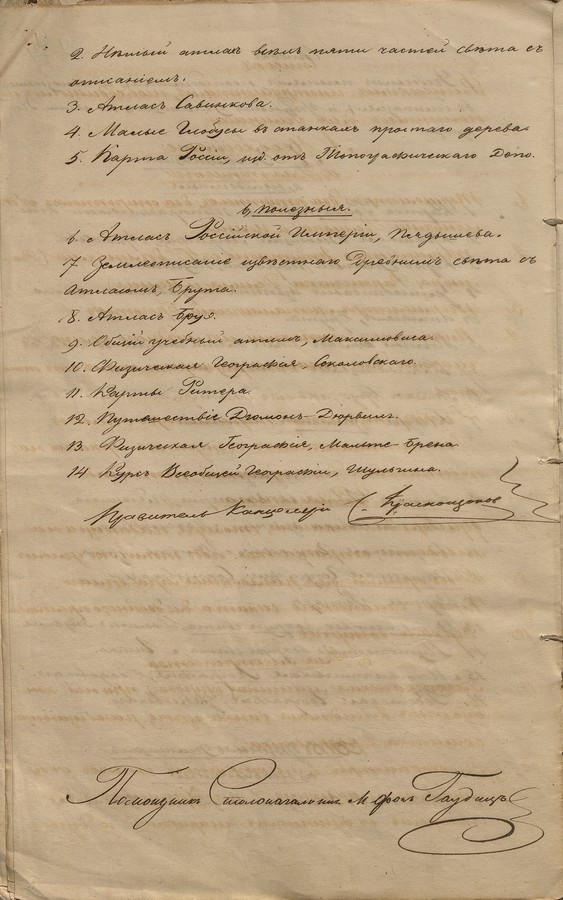 2. Нѣмый атласъ всѣхъ пяти частей свѣта съ
описаніемъ.
3. Атласъ Савинкова.
4. Малые Глобусы въ станкахъ простаго дерева
5. Карта Россіи, изд. отъ Топографическаго Депо.
в, полезныя.
6. Атласъ Россійской Имперіи, Пядышева.
7 Землеписаніе извѣстнаго Древнимъ свѣта съ
Атласомъ, Брута.
8. Атласъ Брюэ.
9. Общій учебный атласъ, Максимовича.
10. Физическая Географія, Соколовскаго.
11. Карты Ритера.
12. Путешествіе Дюмонъ-Дюрвиля.
13. Физическая Географія, Мальте-Брена
14 Курсъ Всеобщей Географіи, Шульгина.
Правитель Канцеляріи С. Красноцвѣтовъ
Помощникъ Столоначальника М фонъ